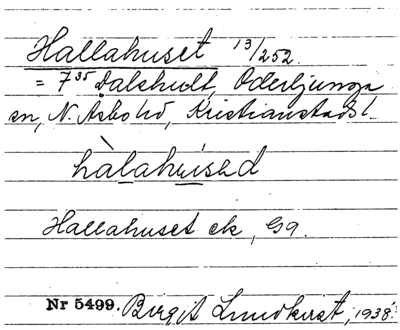 Hallahuset 13/252.
= 7³⁵ Dalshult, Oderljunga
sn, N. Åsbo hd, Kristianstads l.
hàlahuised
Hallahuset ek, G9.
Nr 5499. Birgit Lundkvist, 1938.